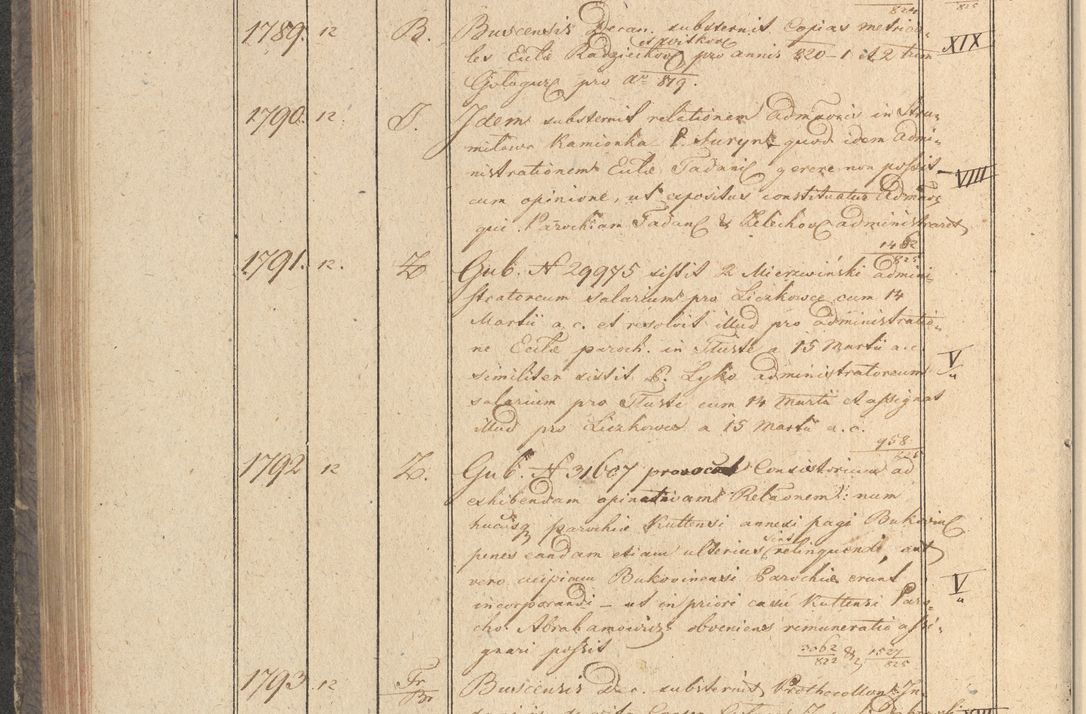 824 825
1789. 12 B. Buscensis Decan. substernit Copias metrica-
les Eccłæ Radziechov et Witkov pro annis 820-1 et 2 tum
Gologurz pro Aº 819. XIX
1790. 12. S. Idem substernit relationem Admtoris in Stru-
milowa Kamionka P. quod idem Admi-
nistrationem Eccłæ Tadanie gerere non possit
cum opinione, ut expositus constituatur Admtor VIII
qui Parochiam Tadan & Zelechov administraret
1462/825
1791. 12. Z Gub. N 29975 sistit 2 Mierzwiński admini-
stratorum salarium pro Liczkowce cum 14
Martii a. c. et resolvit illud pro administratio-
ne Eccłæ paroch. in Tluste a 15 Martii a.c.
similiter sistit P. Lyko administratorum V
salarium pro Tluste cum 14 Martii et assignat
illud pro Liczkowce a 15 Martii a. c.
958/825
1792 12 Z. Gub. N 31607 provocat Consistorium ad
exhibendam opinativam Relaonem: num
hucusq parochiæ Kuttensi annexi pagi Bukovin
penes eandam etiam ulterius sint relinquendi, aut
vero Bukovinensi Parochiæ erunt V
incorporandi – ut in priori casu Kuttensi Paro-
cho Abrahamowicz obveniens remuneratio assi-
gnari possit 3062/822 & 1527/825
1793 12 Fr/Br Buscensis Dec. substernit Prothocollon In-